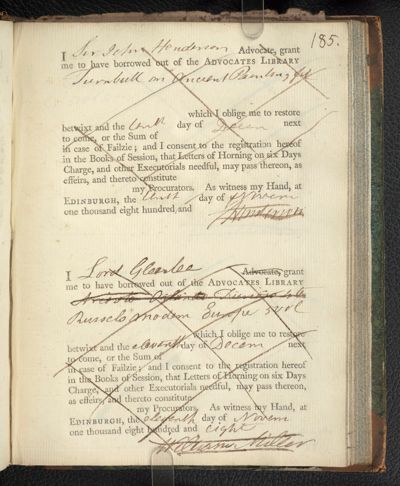 185.
I Sir John Henderson Advocate, grant
me to have borrowed out of the ADVOCATES LIBRARY
Turnbull on Ancient Painting fol
which I oblige me to restore
betwixt and the tenth day of Decem next
to come, or the Sum of
in case of Failzie; and I consent to the registration hereof
in the Books of Session, that Letters of Horning on six Days
Charge, and other Executorials needful, may pass thereon, as
effeirs, and thereto constitute
my Procurators. As witness my Hand, at
EDINBURGH, the day of Novem
one thousand eight hundred and
I Lord Glenlee Advocate, grant
me to have borrowed out of the ADVOCATES LIBRARY
Russels modern Europe 5 vol
which I oblige me to restore
betwixt and the eleventh day of Decem next
to come, or the Sum of
in case of Failzie; and I consent to the registration hereof
in the Books of Session, that Letters of Horning on six Days
Charge, and other Executorials needful, may pass thereon,
as effeirs, and thereto constitute
my Procurators. As witness my Hand, at
EDINBURGH, the eleventh day of Novem
one thousand eight hundred and eight
William Miller